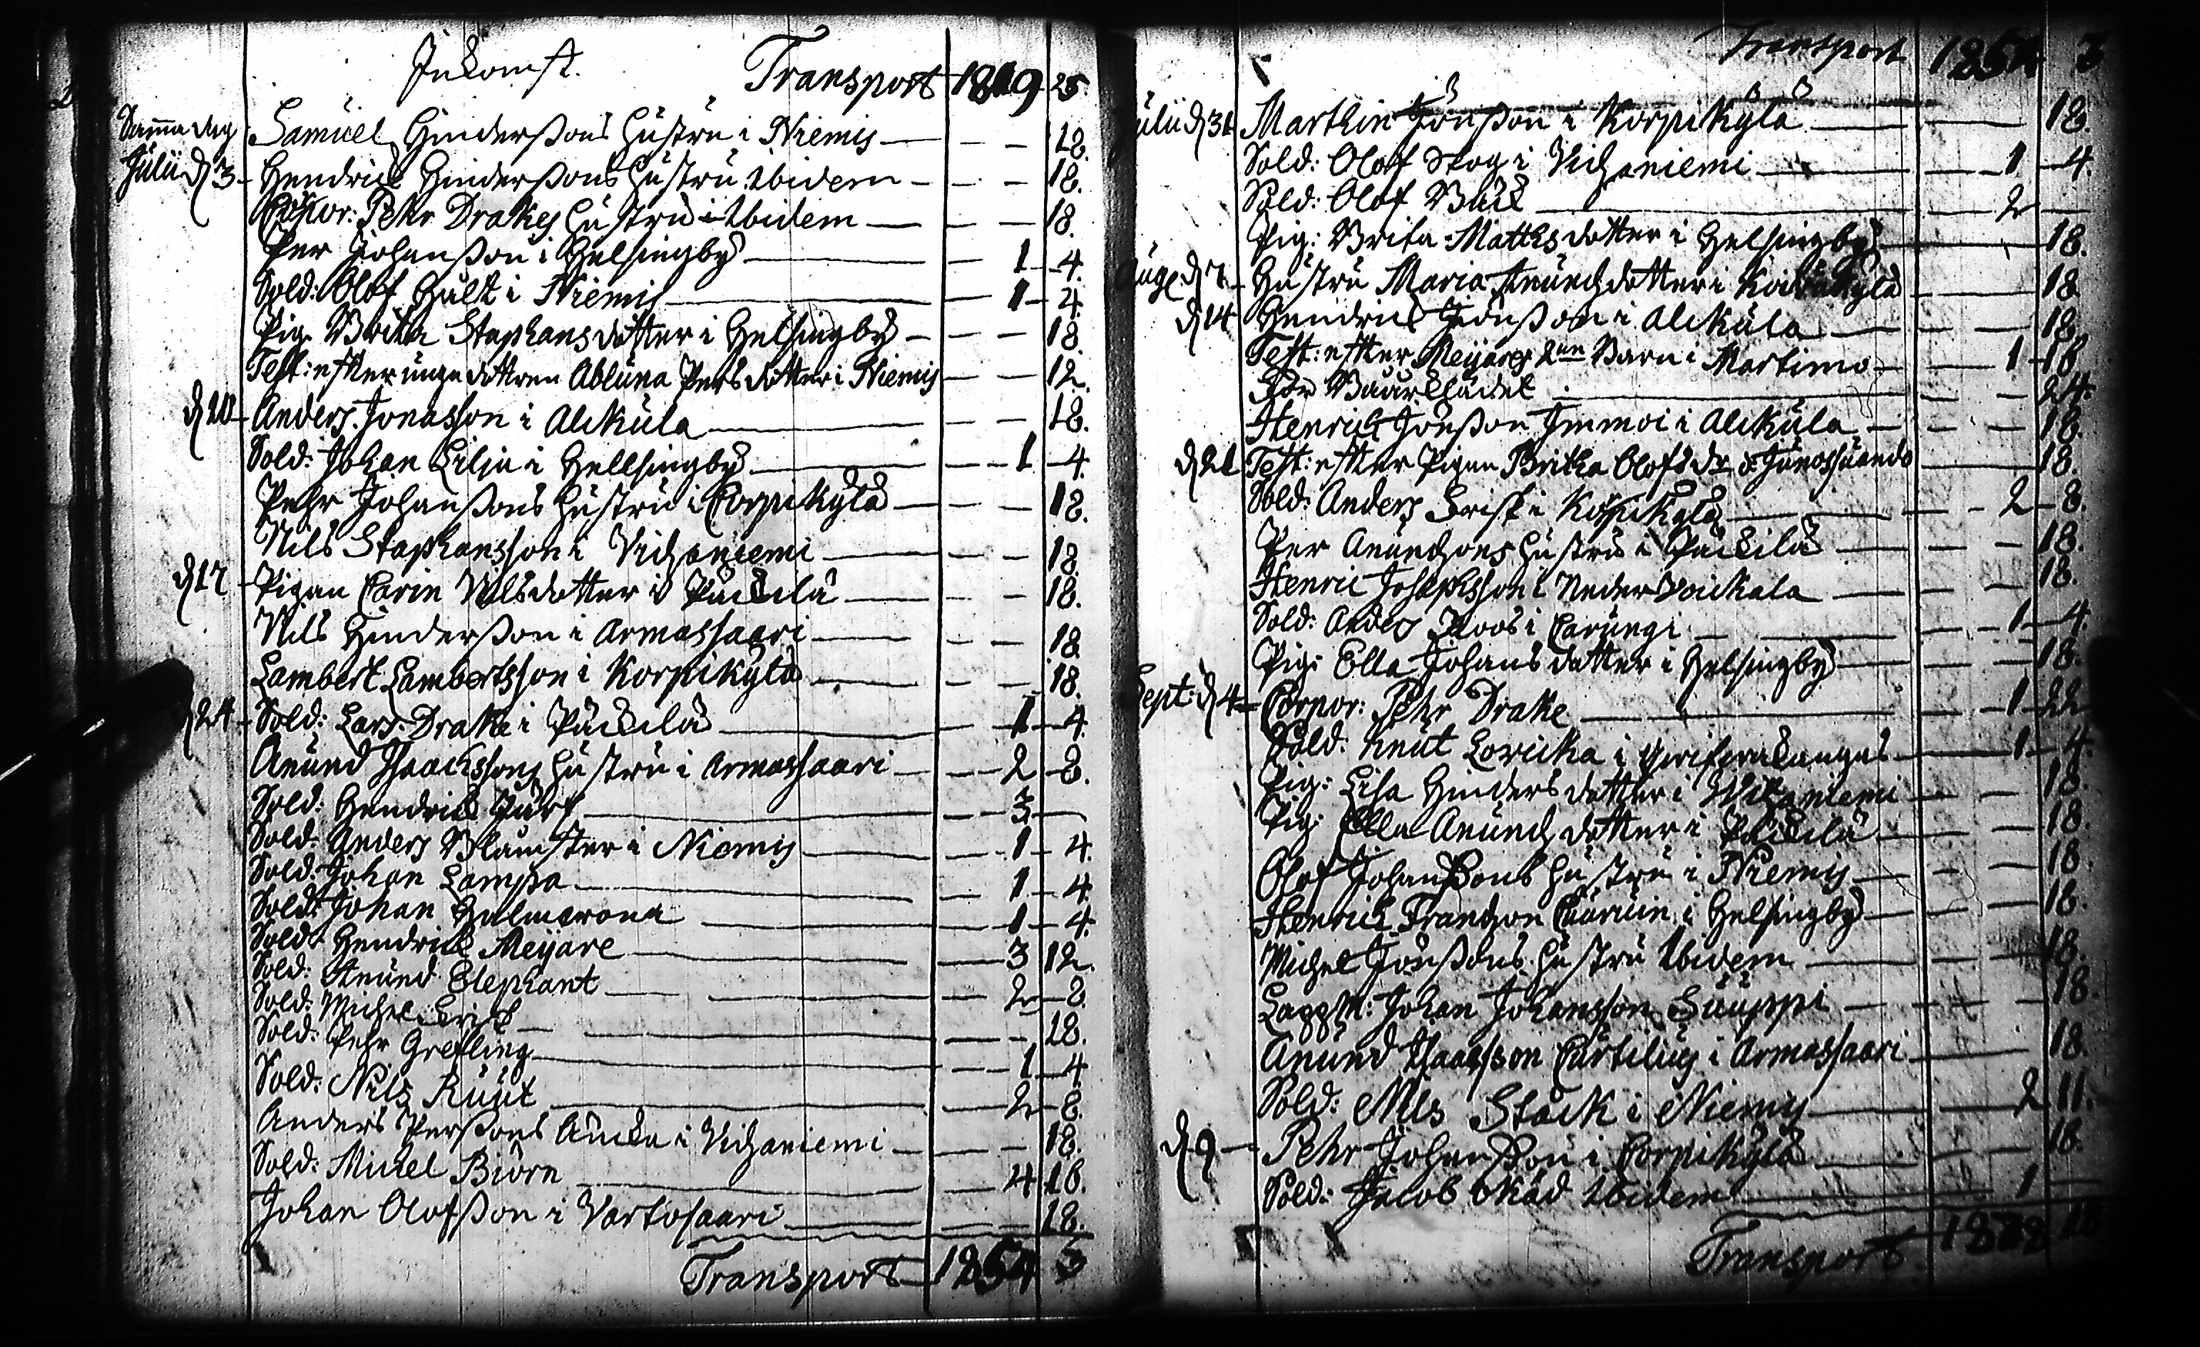 Inkomst. Transport 1819 25
Samma dag Samuel Hinderßons hustru i Niemis — — — 18.
Julii d 3. Hendrick Hinderßons hustru ibidem — — — 18.
Corpor: Pehr Drakes hustru ibidem — — — 18.
Per Johanßon i Helsingby — — 1 — 4.
Sold: Olof Hult i Niemis — — 1 — 4.
Pig. Brita Staphansdotter i Helsingby — — — 18.
Test: efter unga dottren Abluna Persdotter i Niemis — — 12.
d 10 Anders Jonasson i Alkula — — — 18.
Sold: Johan Lilja i Hellsingby — — 1 — 4.
Pehr Johanßons hustru i Corpikylä — — — 18.
Nils Staphansson i Vichaniemi — — — 18.
d 17 Pigan Carin Nilsdotter i Päckilä — — — 18.
Nils Hinderßon i Armassaari — — — 18
Lambert Lambertsson i Korpikylä — — — 18.
d 24 Sold: Lars Drake i Päckilä — 1 — 4.
Anund Isacksons hustru i Armassaari — — 2 — 8.
Sold: Hendrick — — 3 —
Sold: Anders Blåmster i Niemis — — 1 — 4.
Sold: Johan Lampa — — 1 — 4.
Sold: Johan — — 1 — 4.
Sold: Hendrick Meyare — — 3 12.
Sold: Anund Elephant — — 2 — 8.
Sold: Michel — — — 18.
Sold: Pehr Grefling — — 1 — 4
Sold: Nils Kuut — — 2 — 8
Anders Perßons Änka i Vichaniemi — — — 18.
Sold: Mickel Biörn — — 4 18.
Johan Olofßon i Vartosaari — — — 18.
Transport 1854 3
Transport 1854 3
Julii d 31 Marthin Jönßon i Korpikylä — — 18.
Sold: Olof Skog i Vichaniemi — — 1 — 4.
Sold: Olof Bäck — — 2 —
Pig: Brita Mattsdotter i Helsingby — — 18.
Aug d 7 Hustru Maria Anundsdotter i — — 18
d 14 Hendrick Jönßon i Alkula — — 18.
Test: efter Meyares 2ne Barn i Martimo — 1 — 18
För Baarklädet — — 24.
Henrich Jönßon Immoi i Alkula — — — 18.
d 21 Test: efter Pigan Britha Olofsdr i Junossuando — 18.
Sold: Anders i Korpikylä — — 2 — 8.
Per Anundsons hustru i Päckilä — — — 18.
Henric Josephsson i Neder Voickala — — — 18.
Sold: Anders i Carungi — — 1 — 4.
Pig: Ella Johansdotter i Helsingby — — 18.
Sept: d 4 Corpor: Pehr Drake — — 1 — 22
Sold: Knut Lovicka i — — 1 — 4.
Pig: Lisa Hindersdotter i Witzaniemi — — 18.
Pig: Ella Anundsdotter i Päckilä — — — 18.
Olof Johanßons hustru i Niemis — — — 18.
Henrich Frantzon i Helsingby — — — 18.
Michel Jönßons hustru ibidem — — — 18.
Lappm: Johan Johansson — — — 18.
Anund Isaacsson Curtilius i Armassaari — — 18.
Sold: Nils Stock i Niemis — — 2 11.
d 9 — Pehr Johanßon i Corpikylä — — — 18.
Sold: Jacob ibidem — — 1 —
Transport 1878 18